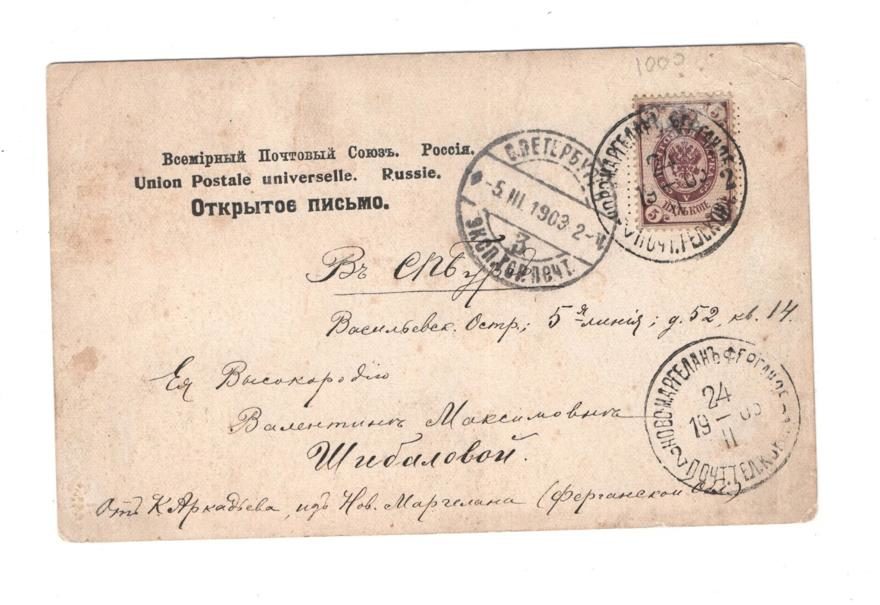 1000
Всемірный Почтовый Союзъ. Россія.
Union Postale universelle. Russie.
Открытое письмо.
С.ПЕТЕРБУ
-5.III.1903.2-
3
ЭКСП.ГОР.ПОЧТ.
НОВО МАРГЕЛАНЪ ФЕРГАНСК.
ПОЧТ.ТЕЛ.КОН.
5
5
Въ СПБург
Васильевск. Остр; 5 я линія; д. 52, кв. 14.
Ея Высокородію
Валентинѣ Максимовнѣ
Шибаловой.
Отъ К. Аркадьева, изъ Нов. Маргелана (Ферганской Обл.)
НОВО МАРГЕЛАНЪ ФЕРГАНСК.
24
19 – 03
II
ПОЧТ.ТЕЛ.КОН.